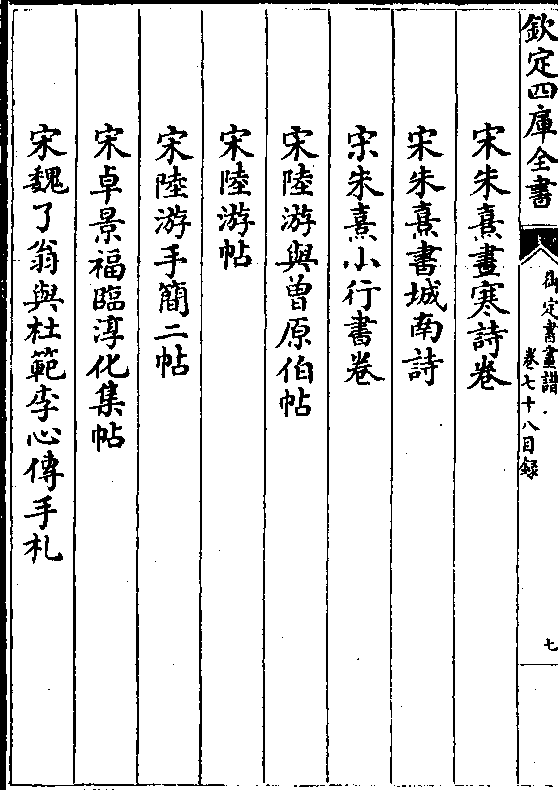 欽定四庫全書
御定書畫譜
卷七十八目録
七
宋朱熹畫寒詩卷
宋朱熹書城南詩
宋朱熹小行書卷
宋陸游與曾原伯帖
宋陸游帖
宋陸游手簡二帖
宋卓景福臨淳化集帖
宋魏了翁與杜範李心傳手札